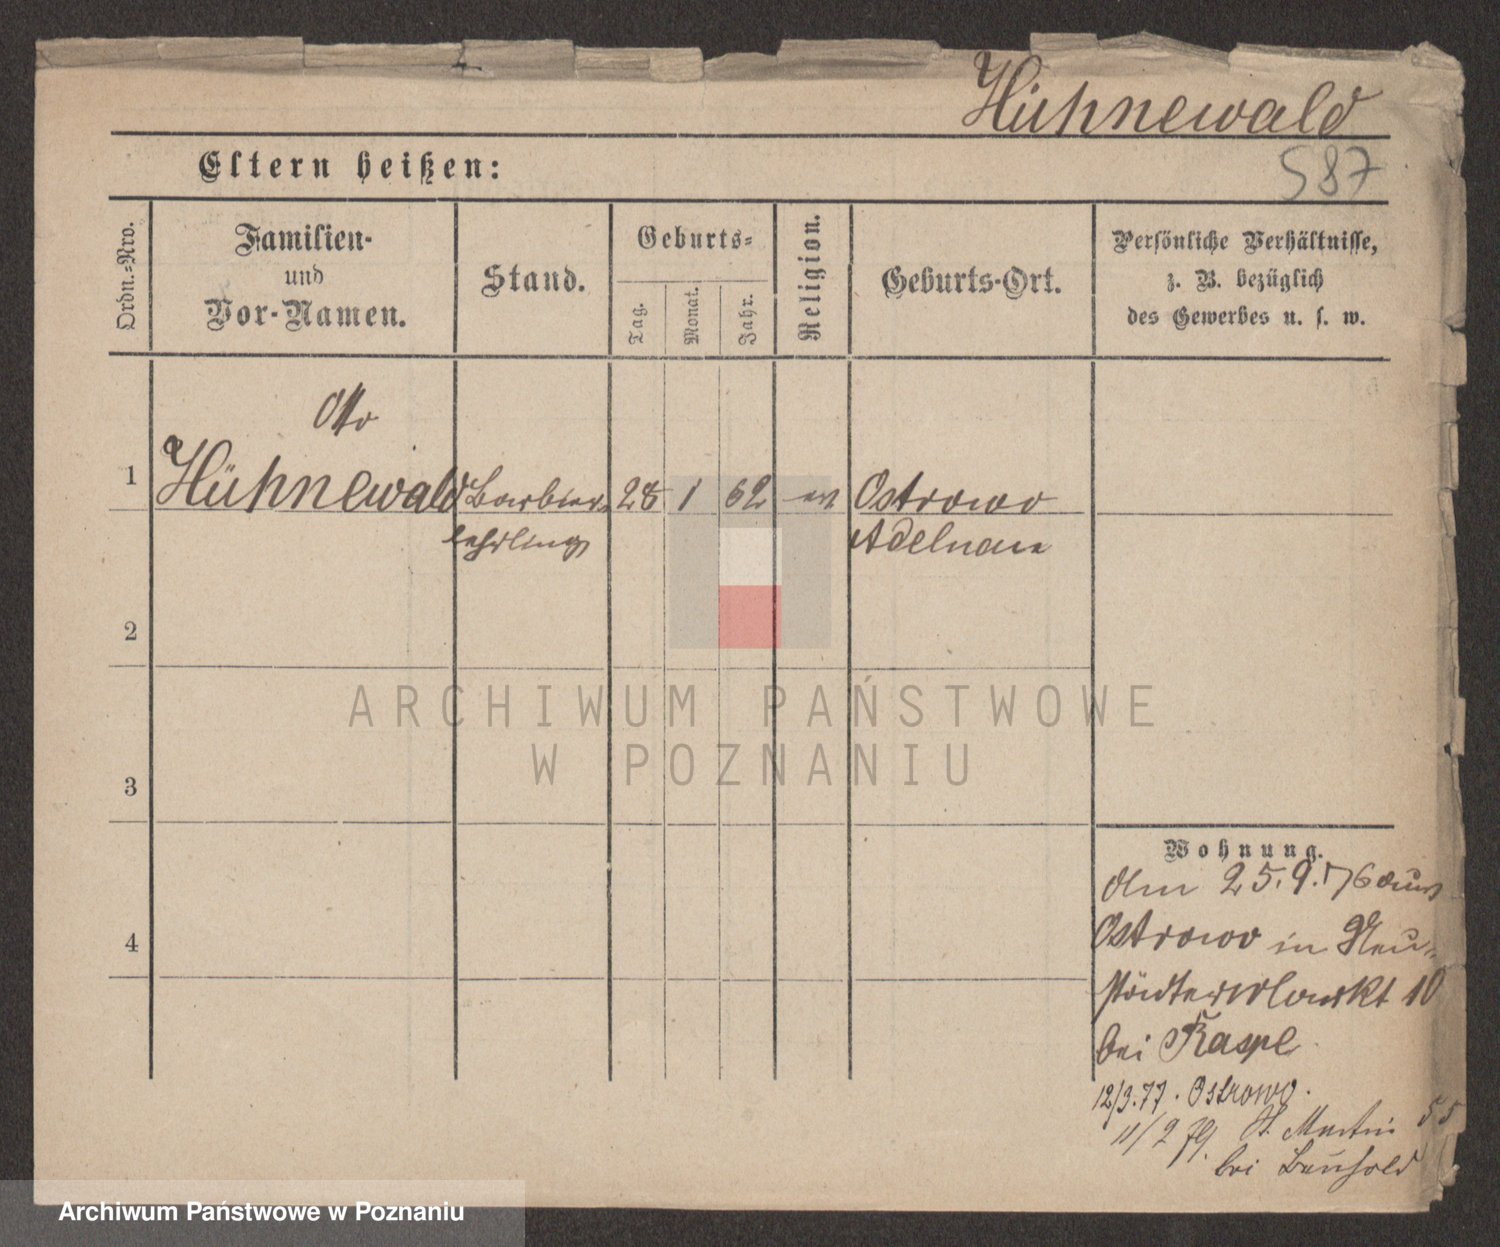 Hühnewald
587
Eltern heißen:
Ordn.-Nro.
Familien-
und
Vor-Namen.
Stand.
Geburts-
Tag.
Monat.
Jahr.
Religion.
Geburts-Ort.
Persönliche Verhältnisse,
z. B. bezüglich
des Gewerbes u. s. w.
Otto
1 Hühnewald Barbier- 28 1 62 ev Ostrowo
lehrling Adelnau
2
3
4
Wohnung.
Am 25.9.76 aus
Ostrowo in Neu-
städtermarkt 10
bei Kaspe
12/3.77. Ostrowo.
11/2 79. St. Martin 55
bei
ARCHIWUM PAŃSTWOWE
W POZNANIU
Archiwum Państwowe w Poznaniu